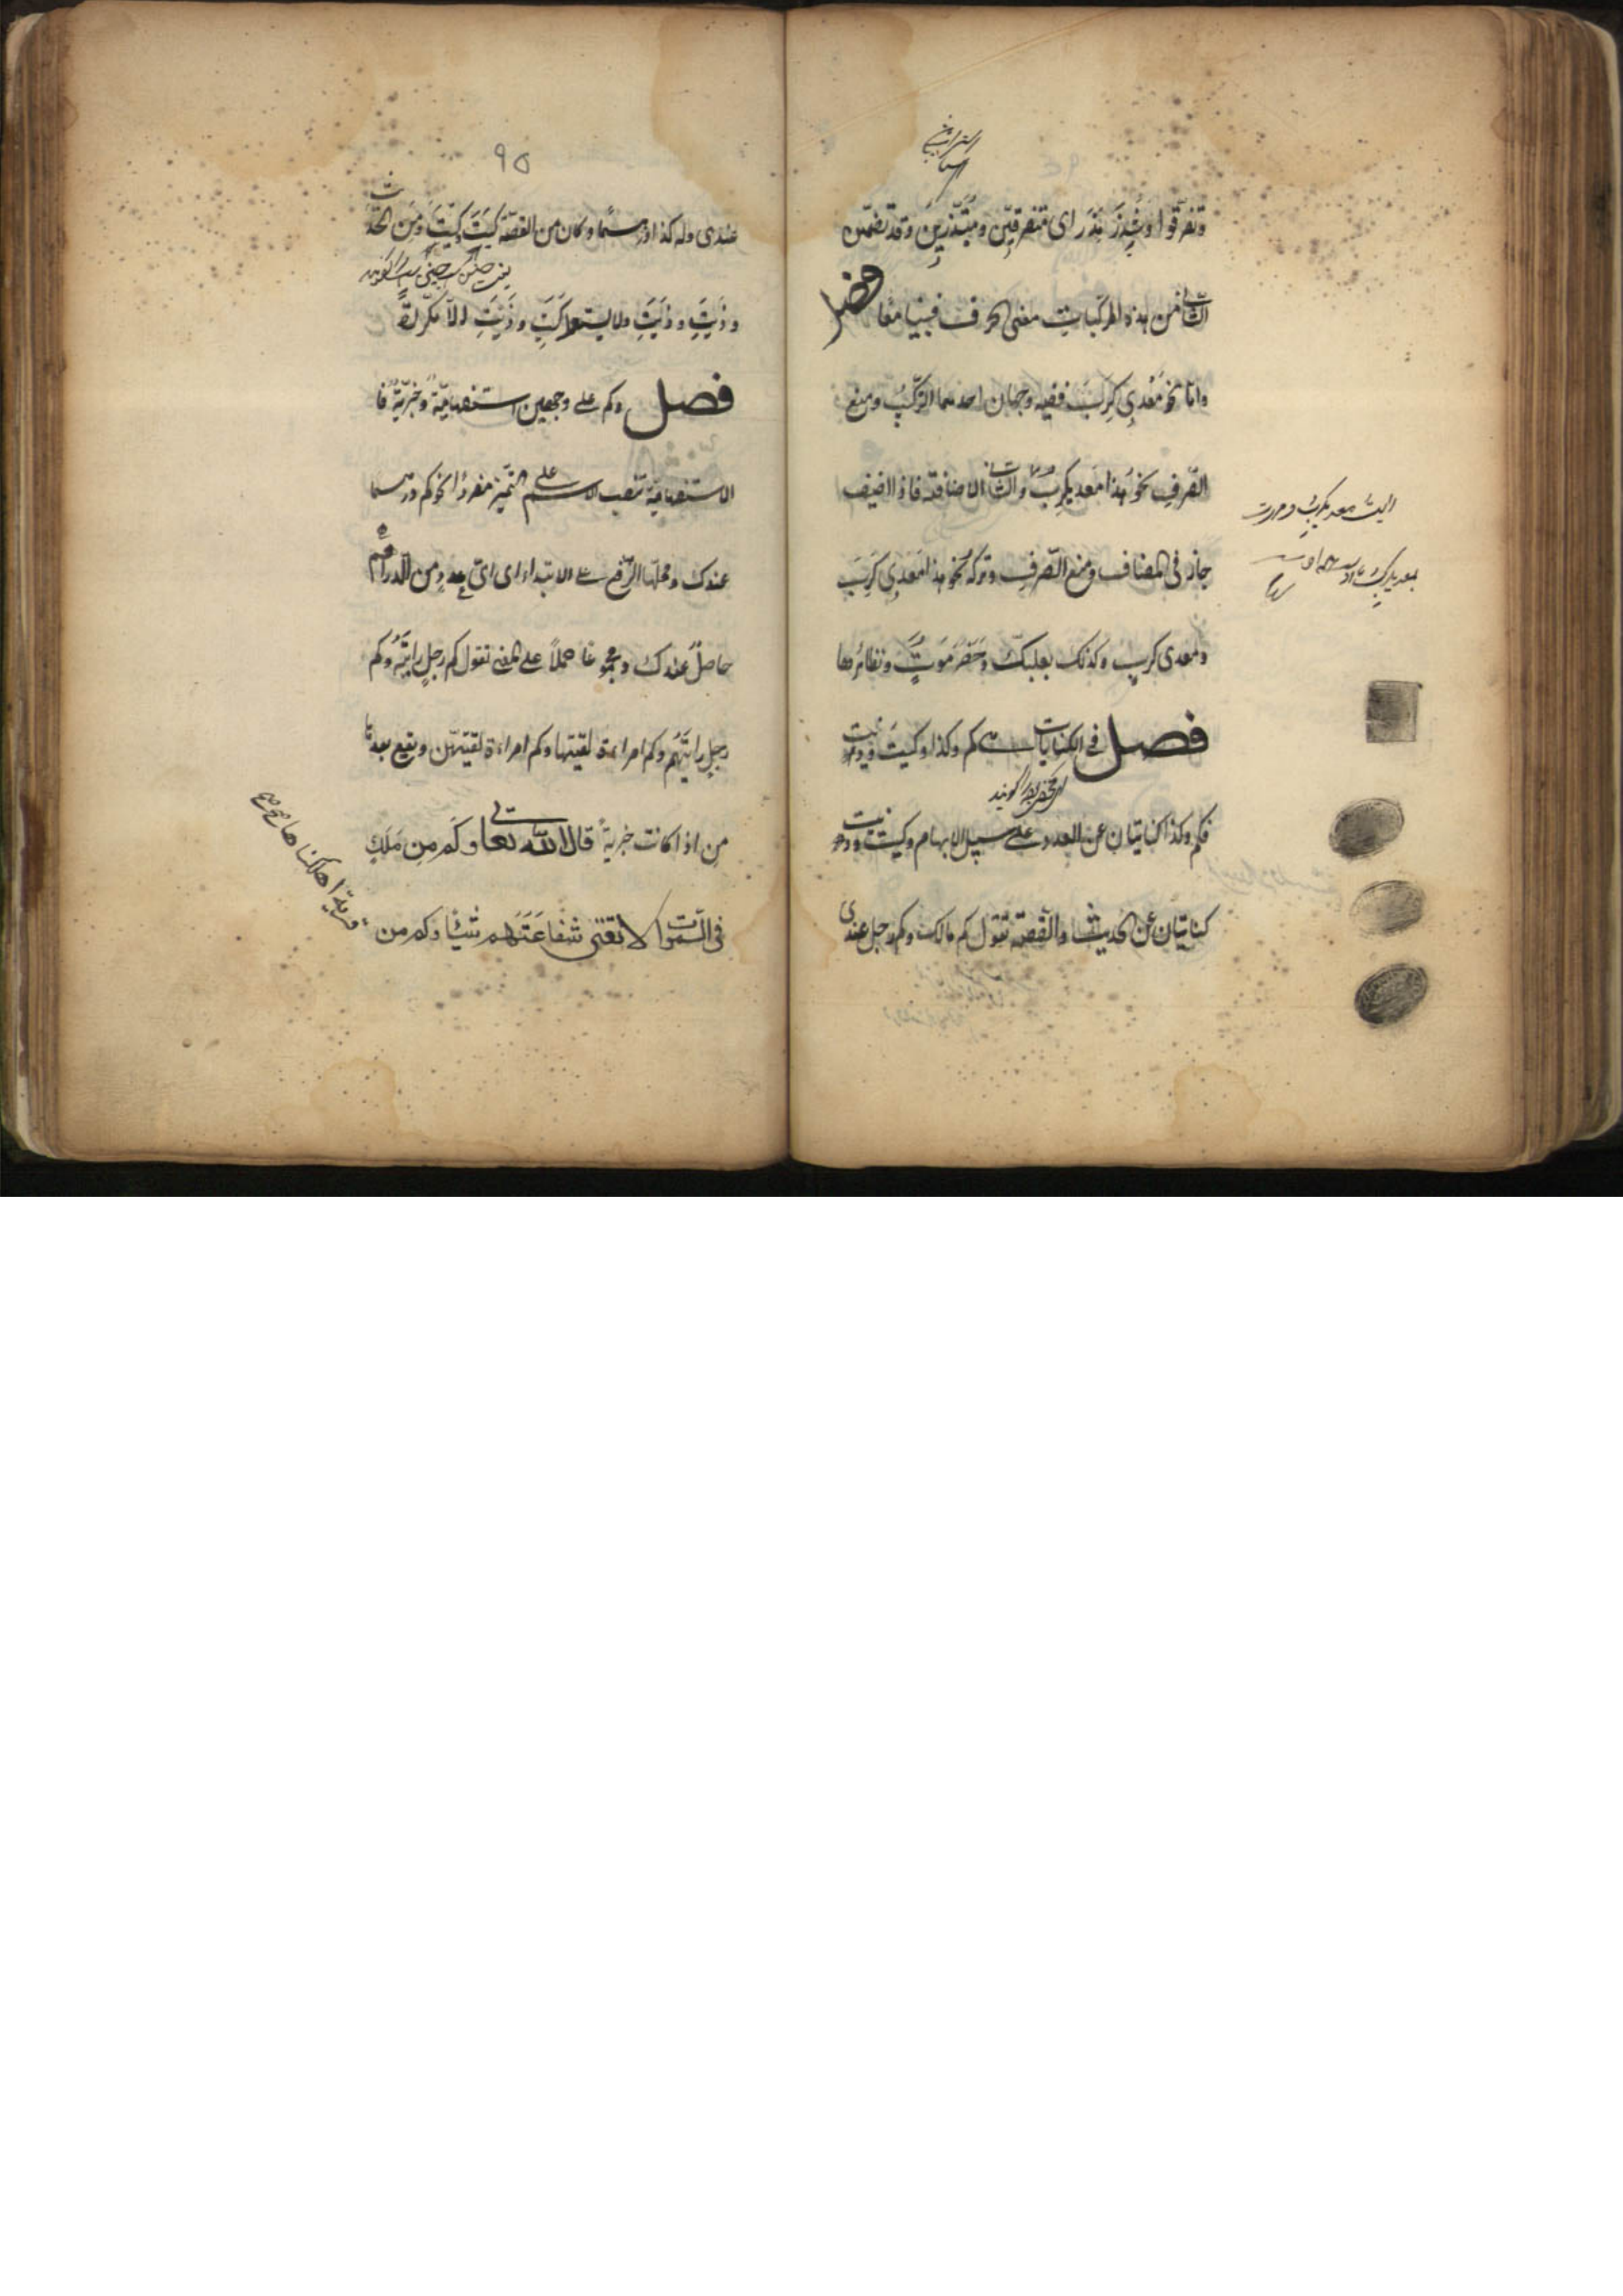 وتفرقوا شذر بذر اى متفرقين ومتبذرين وقد تضمن
الثانى من هذه المركبات معنى الحرف فبنيا معا فصل
واما نحو معدى كرب ففيه وجهان احدهما التركيب ومنع
الصرف نحو هذا معديكرب والثانى الاضافة فاذا اضيف
جاز فى المضاف ومنع الصرف وتركه نحو هذا معدى كرب
ومعدى كرب وكذلك بعلبك وحضرموت ونظائرها
فصل فى الكنايات هى كم وكذا وكيت وذيت
فكم وكذا كنايتان عن العدد على سبيل الابهام وكيت وذيت
كنايتان عن الحديث والقصة تقول كم مالك وكم رجل عندى
رايت معديكرب ومررت
بمعديكرب
٩٥
عندى وله كذا درهما وكان من القصة كيت وكيت ومن الحديث
وذيت وذيت ولا يستعمل كيت وذيت الا مكررة
فصل وكم على وجهين استفهامية وخبرية فا
الاستفهامية تنصب الاسم على التميز مفردا نحو كم درهما
عندك ومحلها الرفع على الابتداء اى اى عدد من الدراهم
حاصل عندك ومجموعا حملا على المعنى تقول كم رجل رايته وكم
رجل رايتهم وكم امراءة لقيتها وكم امراءة لقيتهن ويقع بعدها
من اذا كانت خبرية قال الله تعالى وكم من ملك
فى السموات لا تغنى شفاعتهم شيئا وكم من
قرية اهلكناها صح